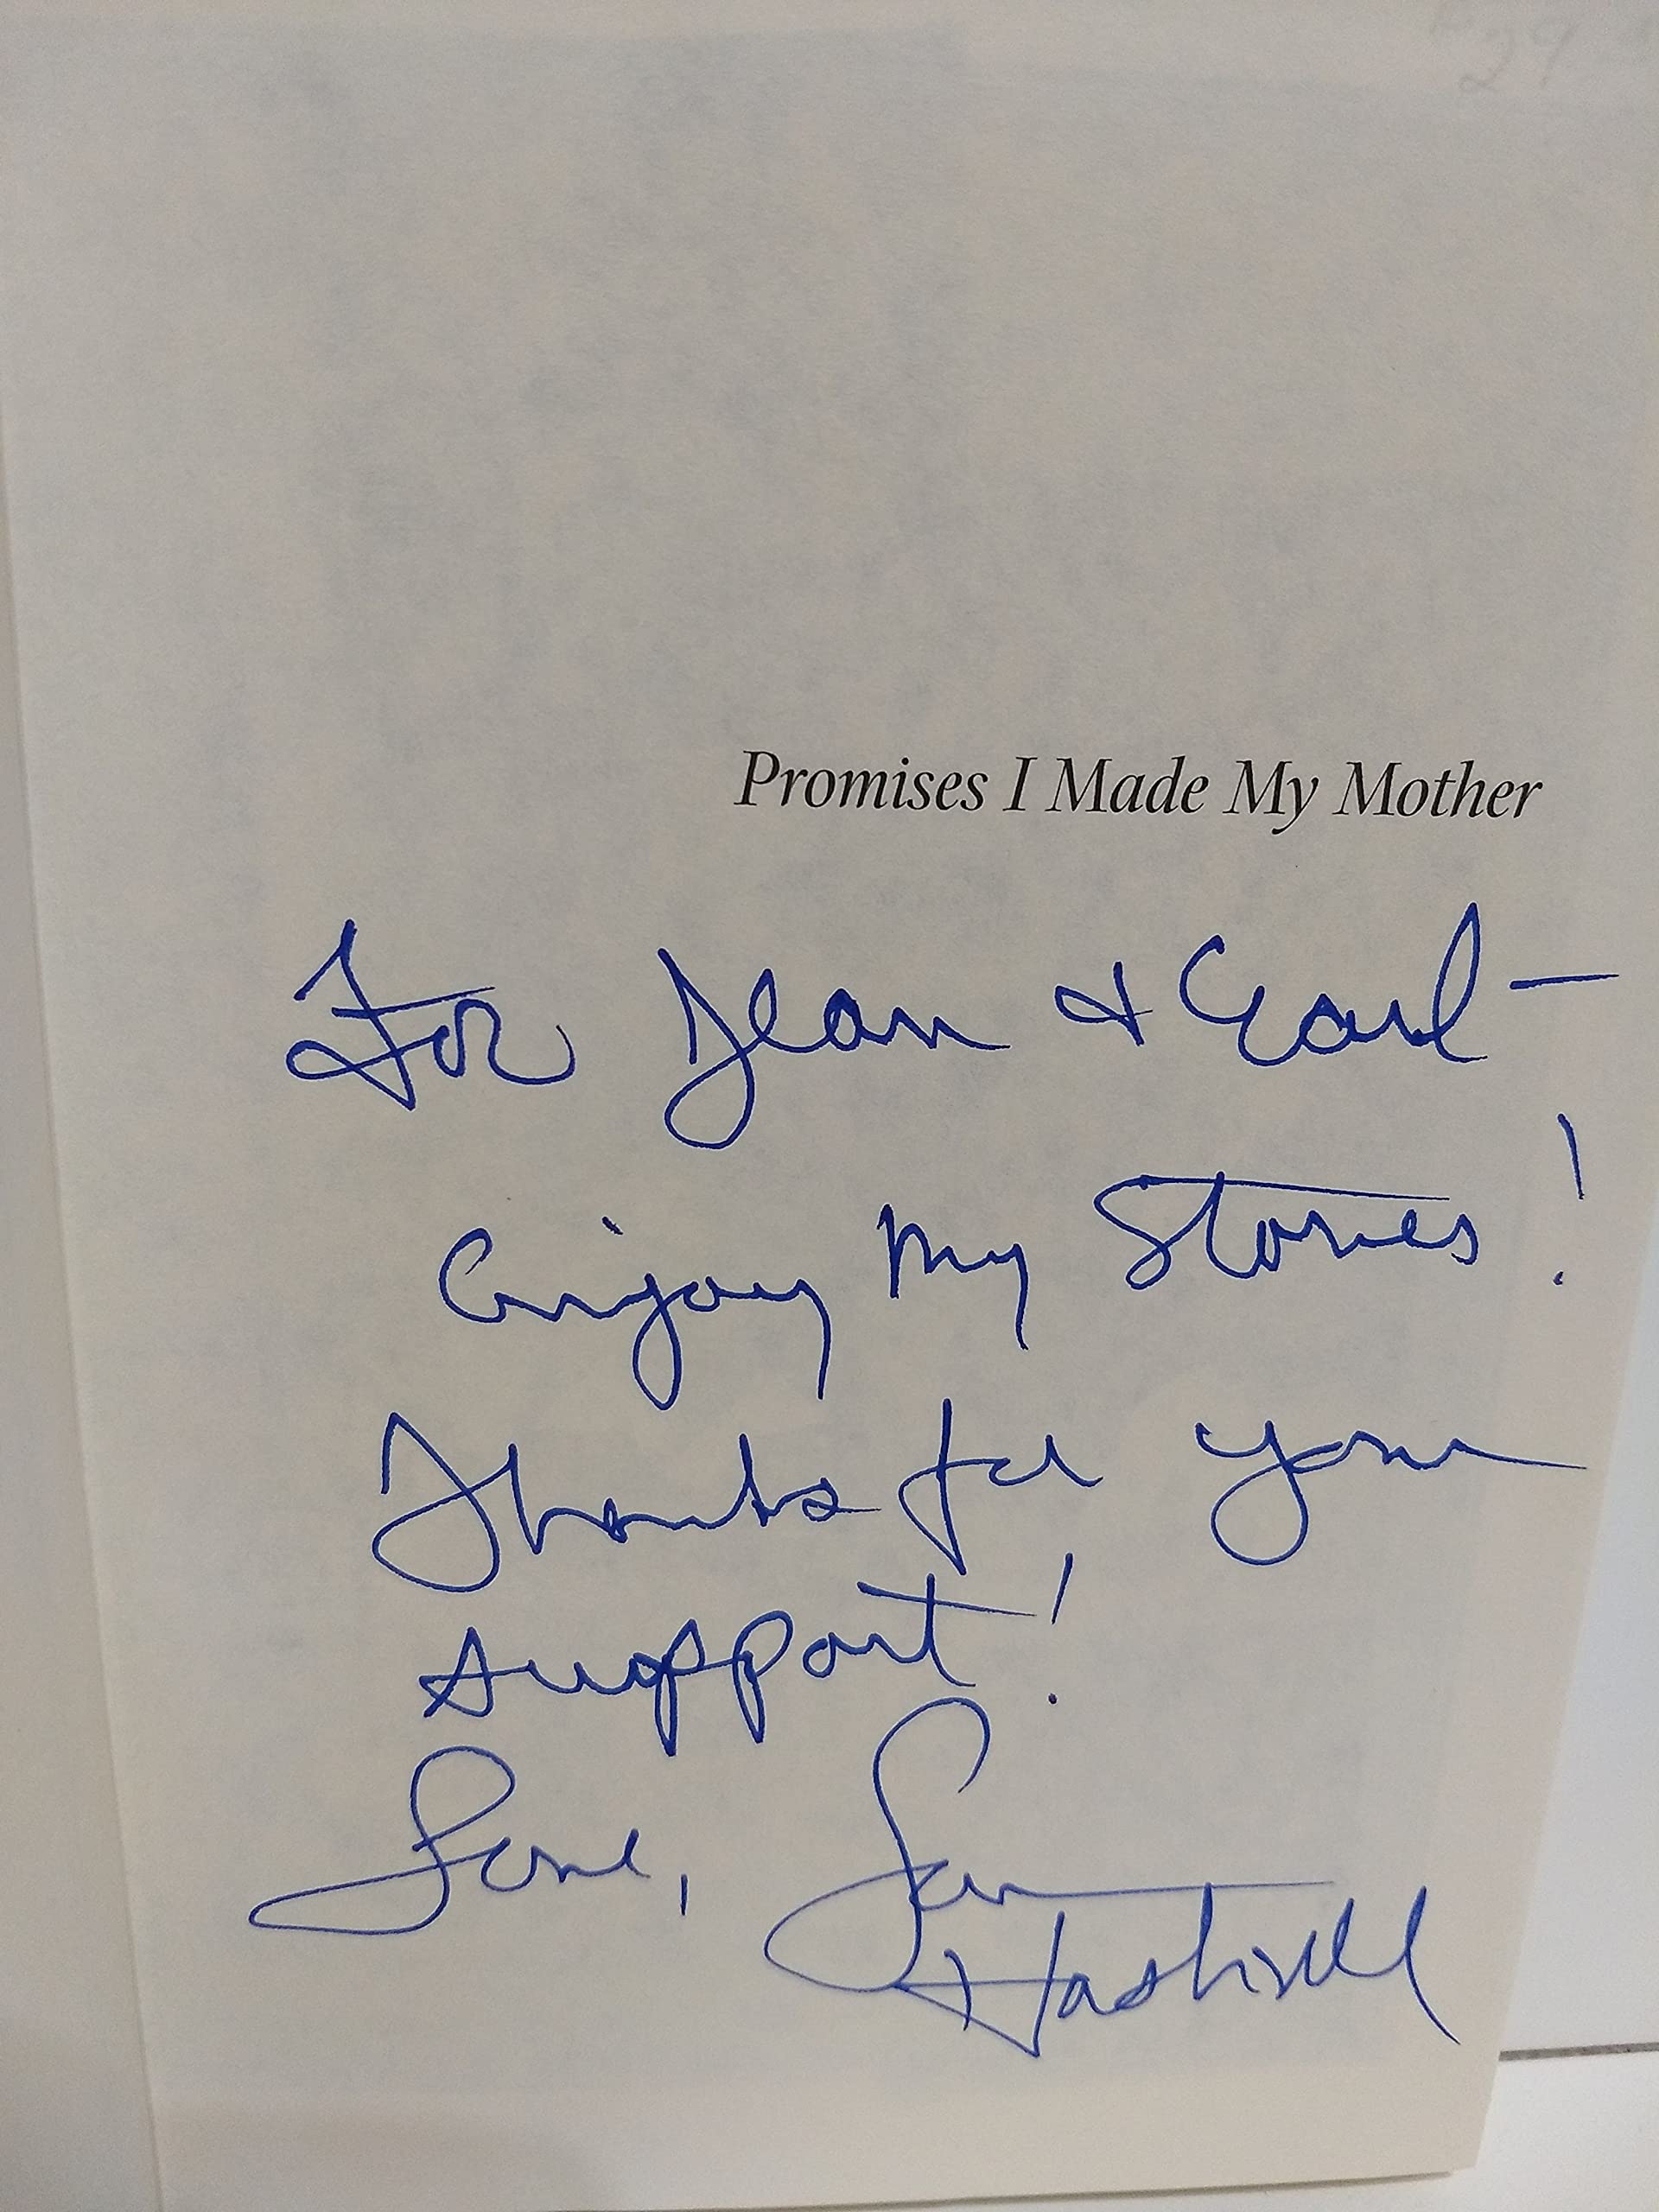 Promises I Made My Mother
For Jean & Earl —
Enjoy My Stories!
Thanks for your
support!
Love, Sam
Haskell